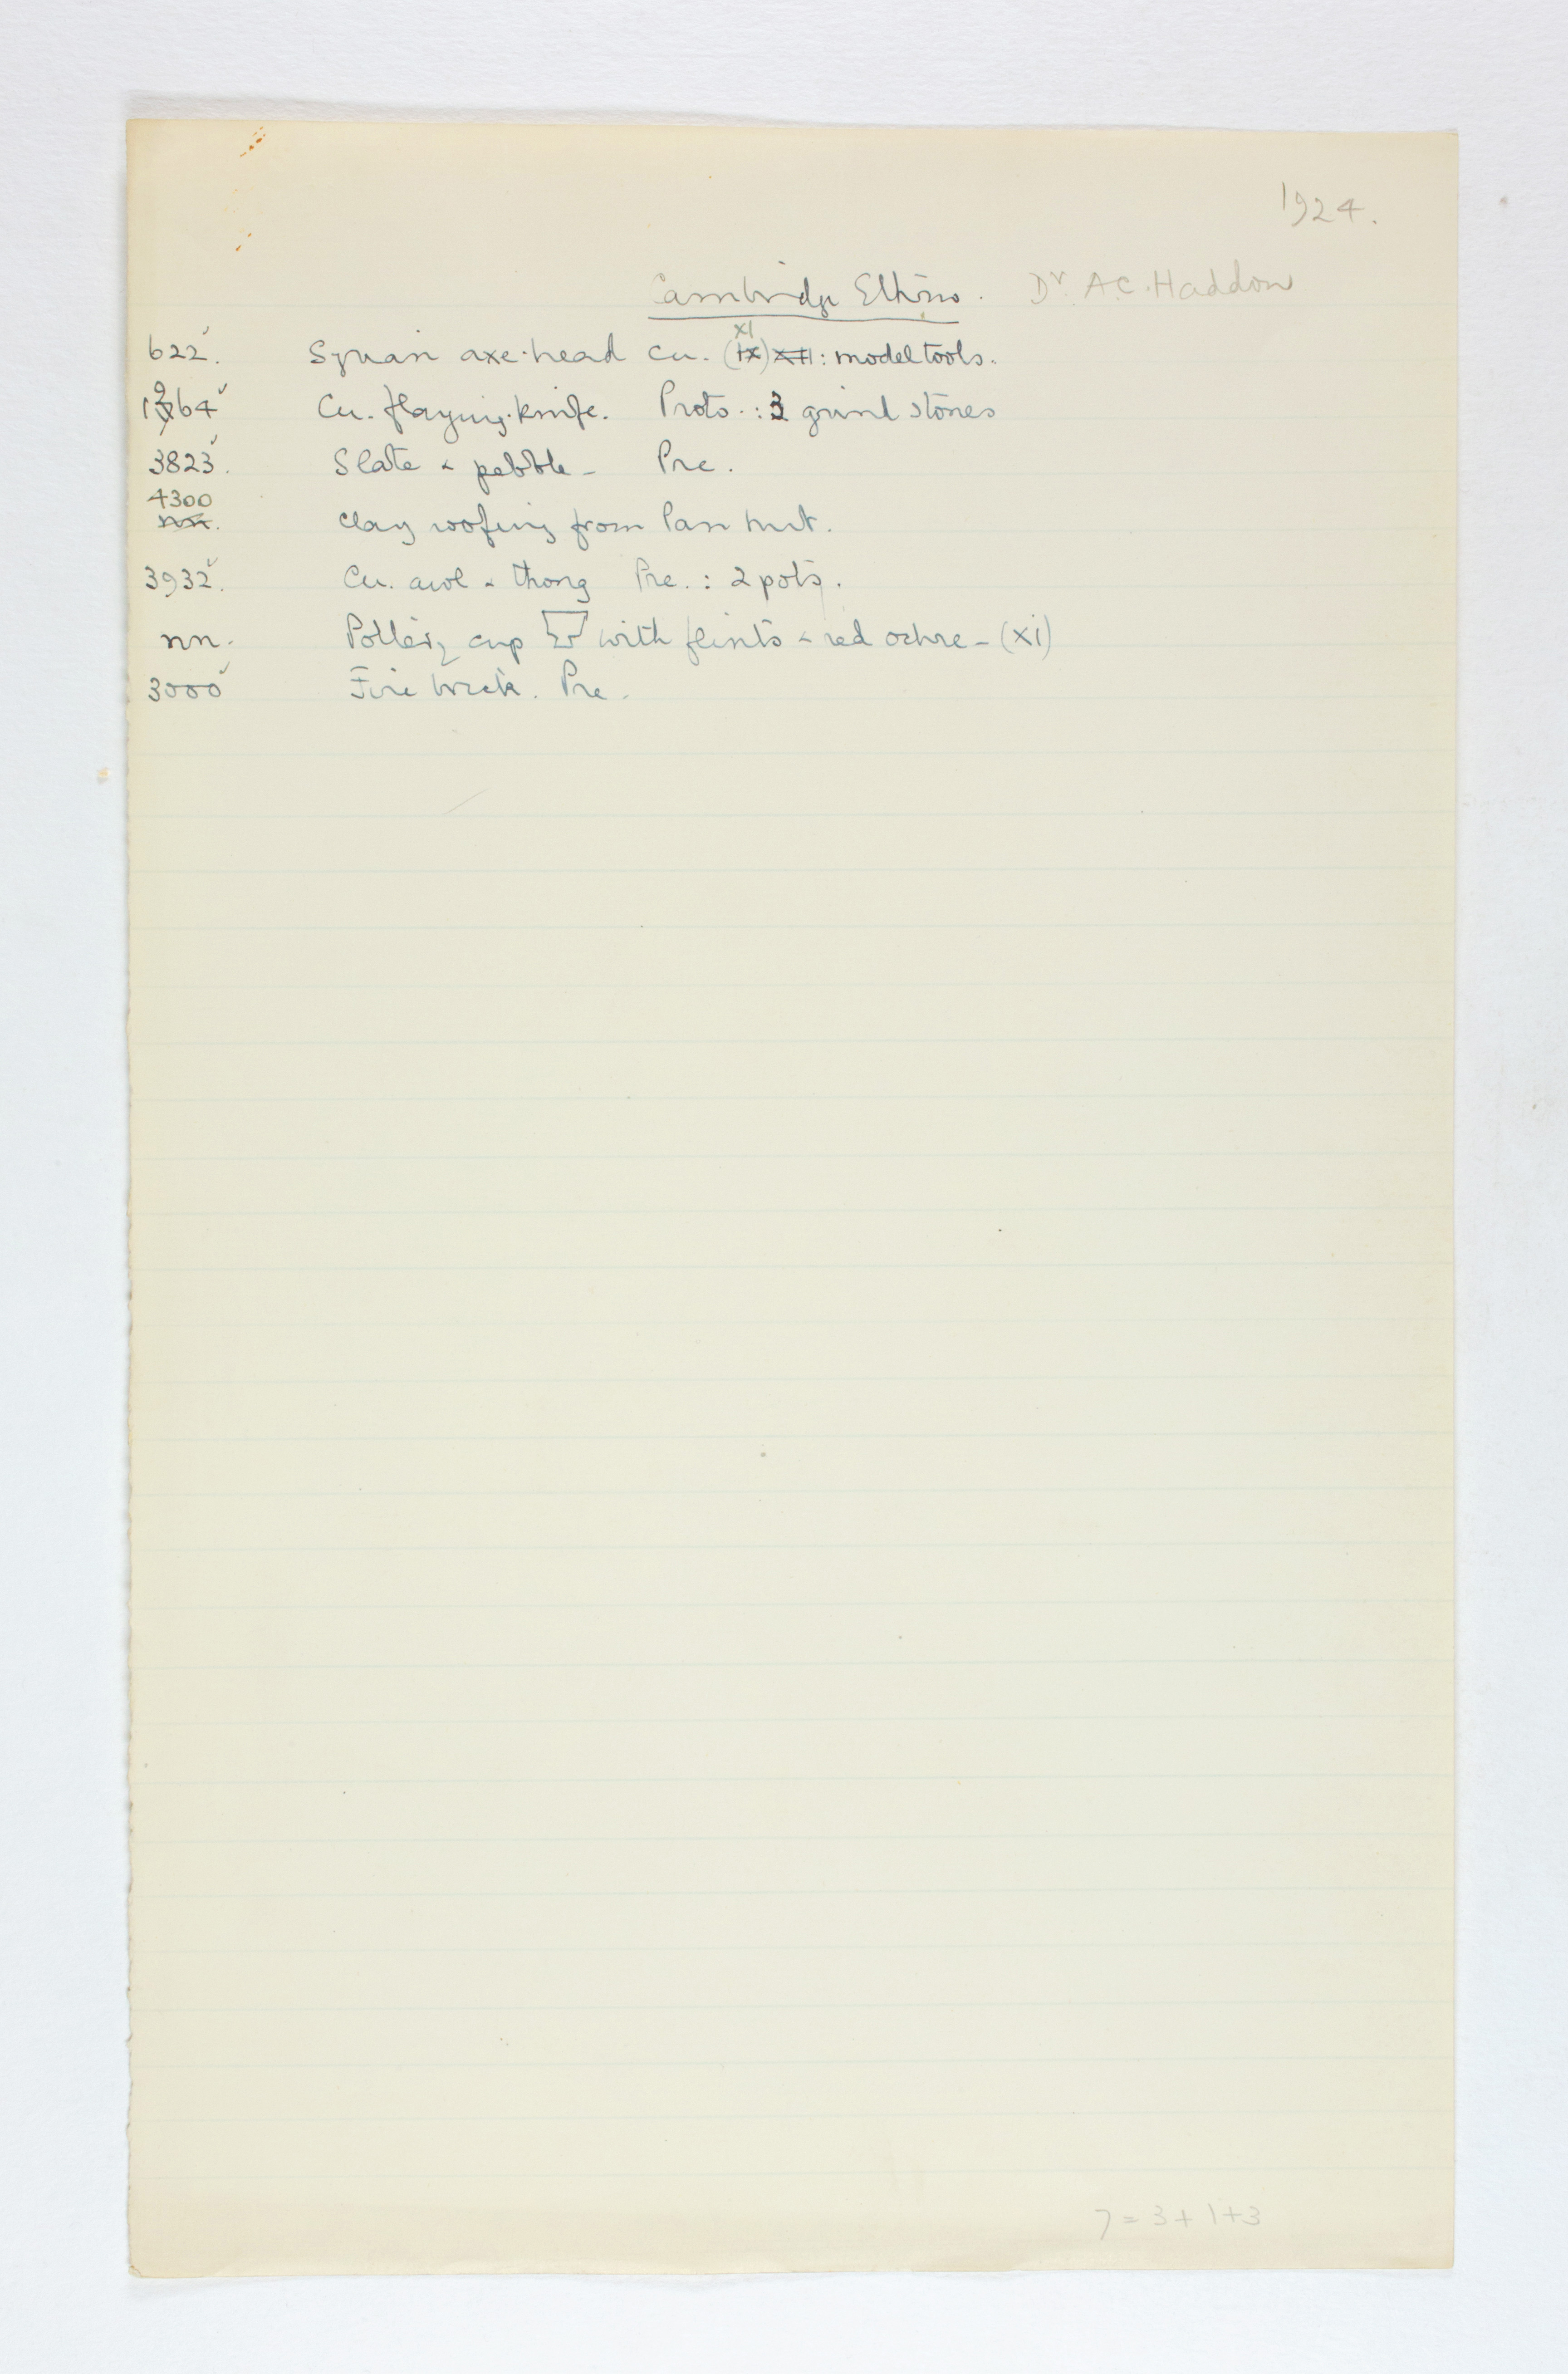 1924.
Cambridge Ethno. Dr. A.C. Haddon
622. Square axe-head cu. (XI) : model tools.
1964 Cu. flaying-knife. Proto. : 3 grind stones
3823. Slate & pebble - Pre.
4300
nn. clay roofing from Pan hut.
3932. Cu. awl & thong Pre. : 2 pots.
nn. Pottery cup with flints & red ochre - (XI)
3000 Fire brick. Pre.
7 = 3 + 1 + 3